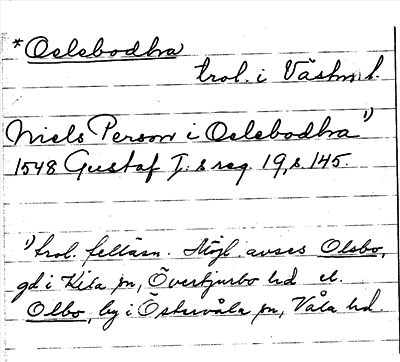 *Oelebodha
trol. i Västm. l.
Niels Person i Oelebodha¹⁾
1548 Gustaf I:s reg. 19, s. 145.
¹⁾trol. felläsn. Möjl. avses Olsbo,
gd i Kila sn, Övertjurbo hd el.
Olbo, by i Östervåla sn, Våla hd.